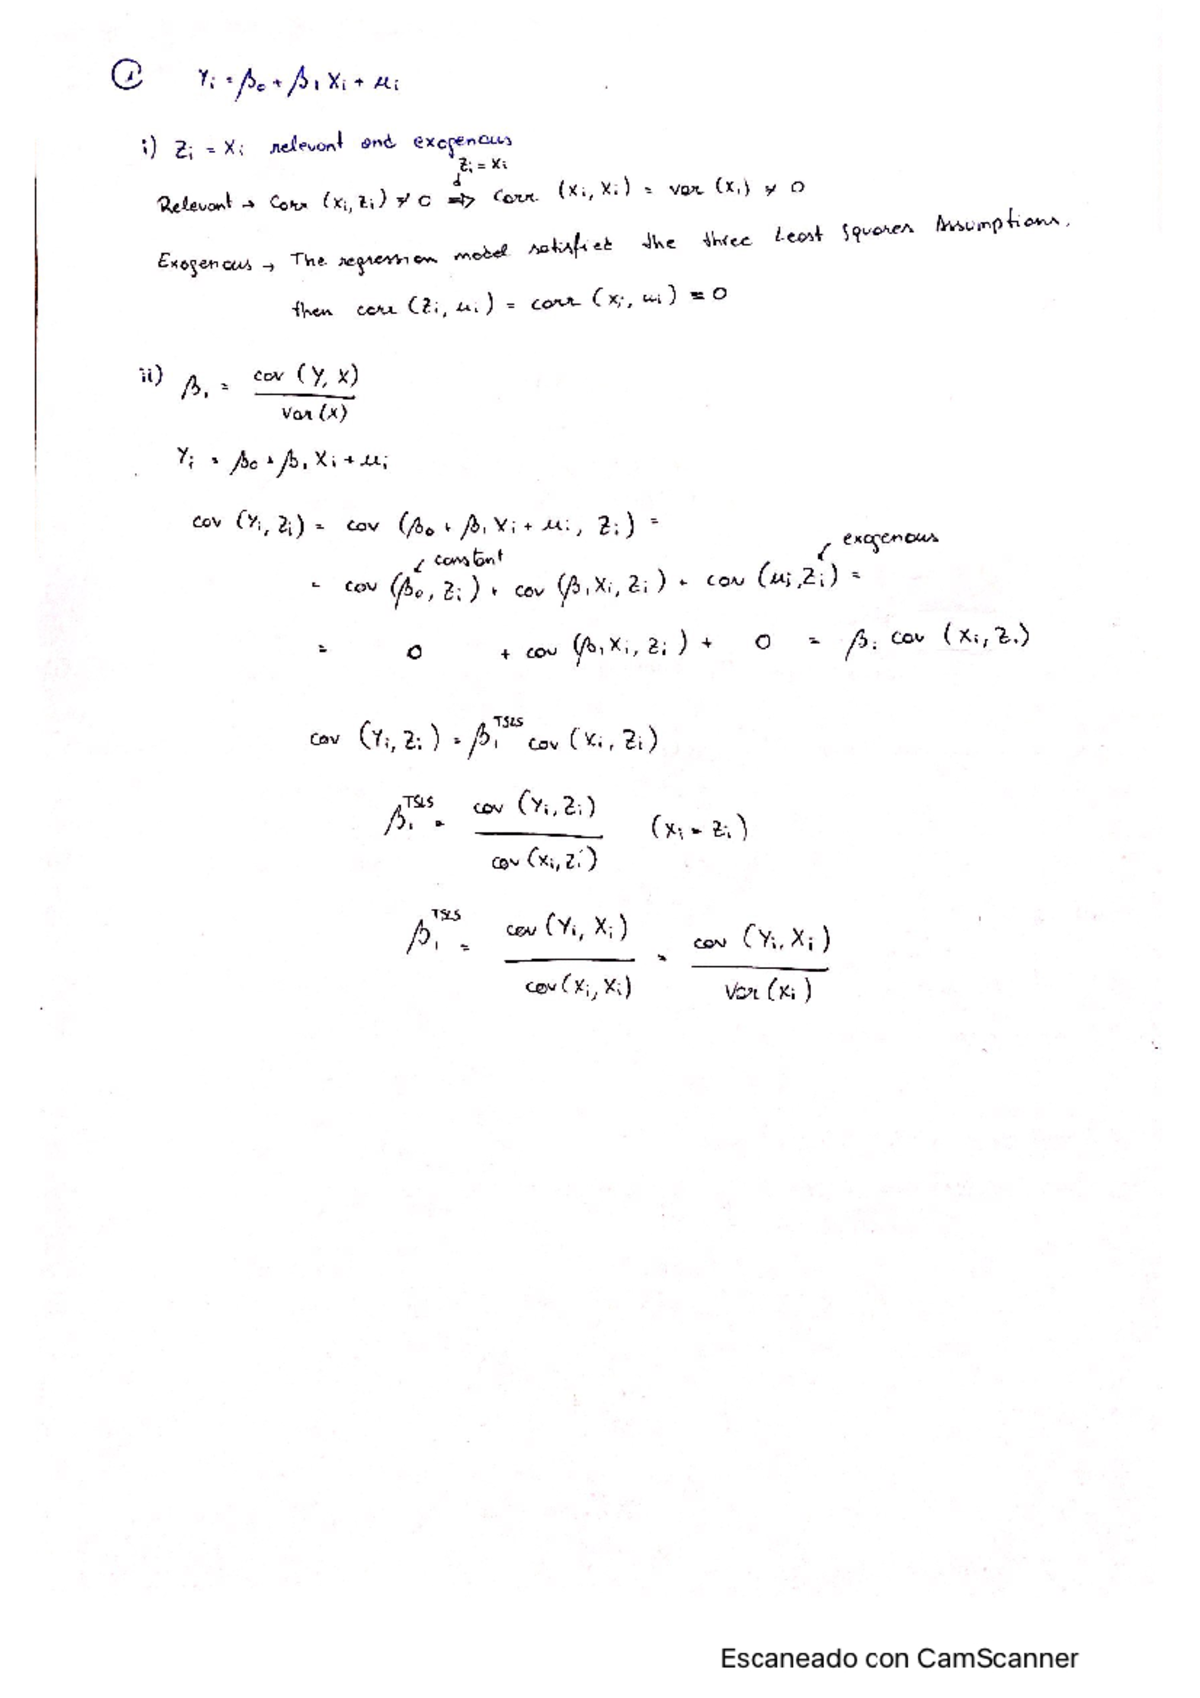 ① Yi = β0 + β1 Xi + ui
i) Zi = Xi relevant and exogenous
Zi = Xi
Relevant → Corr (Xi, Zi) ≠ 0 ⇒ corr. (Xi, Xi) = var (Xi) ≠ 0
Exogenous → The regression model satisfies the three Least Squares Assumptions,
then corr (Zi, ui) = corr (Xi, ui) = 0
ii) β1 = cov (Y, X) / Var (X)
Yi = β0 + β1 Xi + ui
cov (Yi, Zi) = cov (β0 + β1 Xi + ui, Zi) =
↙ constant ↙ exogenous
= cov (β0, Zi) + cov (β1 Xi, Zi) + cov (ui, Zi) =
= 0 + cov (β1 Xi, Zi) + 0 = β1 cov (Xi, Zi)
cov (Yi, Zi) = β1^TSLS cov (Xi, Zi)
β1^TSLS = cov (Yi, Zi) / cov (Xi, Zi) (Xi = Zi)
β1^TSLS = cov (Yi, Xi) / cov (Xi, Xi) = cov (Yi, Xi) / Var (Xi)
Escaneado con CamScanner